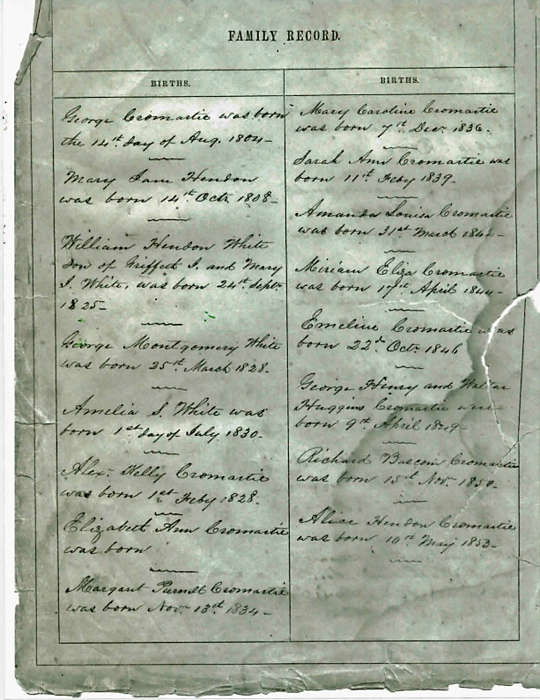 FAMILY RECORD.
BIRTHS.
George Cromartie was born
the 14th day of Aug. 1804
Mary Jane Hendon
was born 14th Octr 1808
William Hendon White
son of Griffett J. and Mary
J. White, was born 24th Septr
1825
George Montgomery White
was born 25th March 1828.
Amelia S. White was
born 1st day of July 1830
Alexr Kelly Cromartie
was born 1st Feby 1828.
Elizabeth Ann Cromartie
was born
Margaret Cromartie
was born Novr 13th 1834
BIRTHS.
Mary Caroline Cromartie
was born 7th Decr 1836.
Sarah Ann Cromartie was
born 11th Feby 1839
Amanda Louisa Cromartie
was born 31st March
Miriam Eliza Cromartie
was born 17th April
Emeline Cromartie was
born 22d Octr 1846
George Henry and Walter
Huggins Cromartie were
born 9th April 1849
Richard Bascom Cromartie
was born 15th Novr 1850
Alice Hendon Cromartie
was born 10th May 1853